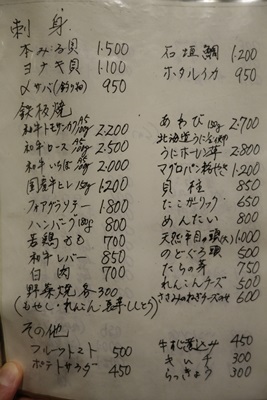 刺身
本みる貝 1.500
ヨナキ貝 1.100
〆サバ(釣り物) 950
石垣鯛 1.200
ホタルイカ 950
鉄板焼
和牛トモサンカク 2.200
和牛ロース 2.500
和牛いちぼ 2.000
国産牛ヒレ 1.200
フォアグラソテー 1.800
ハンバーグ 180g 800
若鶏もも 700
和牛レバー 850
白肉 700
野菜焼 各300
(もやし・れんこん・長芋・ししとう)
あわび 2.700
北海道うに
うにホーレン草 2.800
マグロハラミ 1.200
貝柱 850
たこガーリック 650
めんたい 800
天然平目の 1.000
のどぐろ頭 500
たらの芽 750
れんこんチーズ 500
ささみのねぎチーズのせ 600
その他
フルーツトマト 500
ポテトサラダ 450
牛すじ煮込み 450
キムチ 300
らっきょう 300